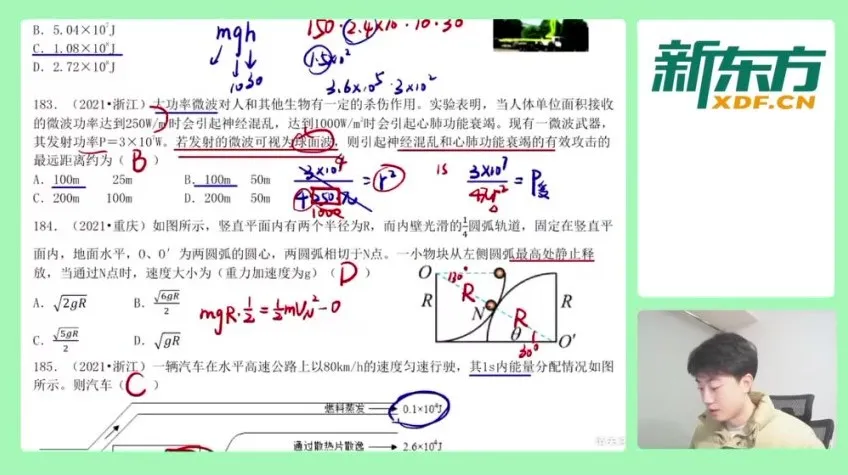 B. 5.04×10⁷J
C. 1.08×10⁸J
D. 2.72×10⁸J
mgh
10 30
150·2.4×10·10·30
1.5×10²
3.6×10⁵·3×10²
新东方
XDF.CN
183. （2021•浙江）大功率微波对人和其他生物有一定的杀伤作用。实验表明，当人体单位面积接收
的微波功率达到250W/m²时会引起神经混乱，达到1000W/m²时会引起心肺功能衰竭。现有一微波武器，
其发射功率P＝3×10⁷W。若发射的微波可视为球面波，则引起神经混乱和心肺功能衰竭的有效攻击的
最远距离约为（ B ）
A. 100m 25m B. 100m 50m
C. 200m 100m D. 200m 50m
3×10⁷
4 250 π
1000
4
= r²
1s
3×10⁷
4πr²
= P受
184. （2021•重庆）如图所示，竖直平面内有两个半径为R，而内壁光滑的1/4圆弧轨道，固定在竖直平
面内，地面水平，O、O′为两圆弧的圆心，两圆弧相切于N点。一小物块从左侧圆弧最高处静止释
放，当通过N点时，速度大小为（重力加速度为g）（ D ）
A. √2gR B. √6gR/2
C. √5gR/2 D. √gR
mgR·1/2=1/2mV_N²-0
O 30° R R N R R θ 30° O′
185. （2021•浙江）一辆汽车在水平高速公路上以80km/h的速度匀速行驶，其1s内能量分配情况如图
所示。则汽车（ C ）
燃料蒸发 0.1×10⁴J
通过散热片散逸 2.6×10⁴J